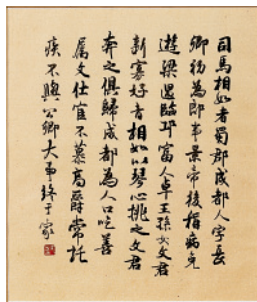 司馬相如者蜀郡成都人字長
卿初為郎事景帝後稱病免
遊梁還臨邛富人卓王孫女文君
新寡好音相如以琴心挑之文君
奔之俱歸成都為人口吃善
屬文仕宦不慕高爵常託
疾不與公卿大事終于家